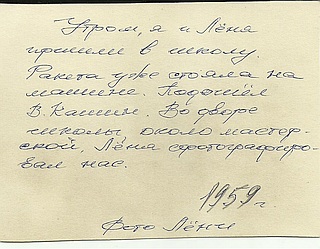 Утром, я и Лёня
пришли в школу.
Ракета уже стояла на
машине. Подошёл
В. Кашин. Во дворе
школы, около мастер-
ской, Лёня сфотографиро-
вал нас.
1959 г.
Фото Лёни